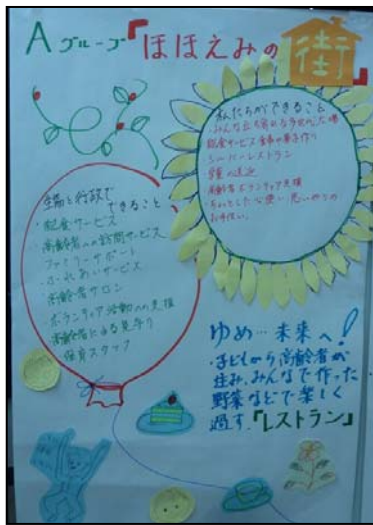 Aグループ『ほほえみの街』
私たちができること
・みんな立ち寄れる 広場
配食サービス
シルバーレストラン
学童の送迎
高齢者ボランティア支援
ちょっとした
お手伝い。
と行政で
できること
・配食サービス
・高齢者への訪問サービス
ファミリーサポート
・ふれあいサービス
・高齢者サロン
・ボランティア活動への支援
高齢者による見守り
・保育スタッフ
ゆめ…未来へ!
・子どもから高齢者が
住み、みんなで作った
野菜などで楽しく
過す、『レストラン』